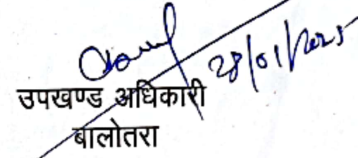 28/01/2025
उपखण्ड अधिकारी
बालोतरा